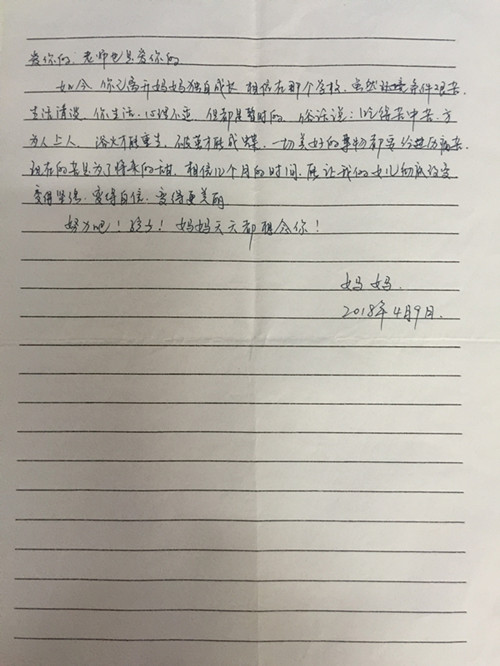 爱你的，老师也是爱你的
如今你已离开妈妈独自成长，相信在那个学校，虽然环境条件艰苦，
生活清淡，你生活、心理不适，但都是暂时的，俗话说：吃得苦中苦，方
为人上人，浴火才能重生，破茧才能成蝶，一切美好的事物都要经历痛苦，
现在的苦是为了将来的甜，相信12个月的时间，能让我的女儿彻底改变
变得坚强，变得自信，变得更美丽
努力吧！孩子！妈妈天天都想念你！
妈妈
2018年4月9日.